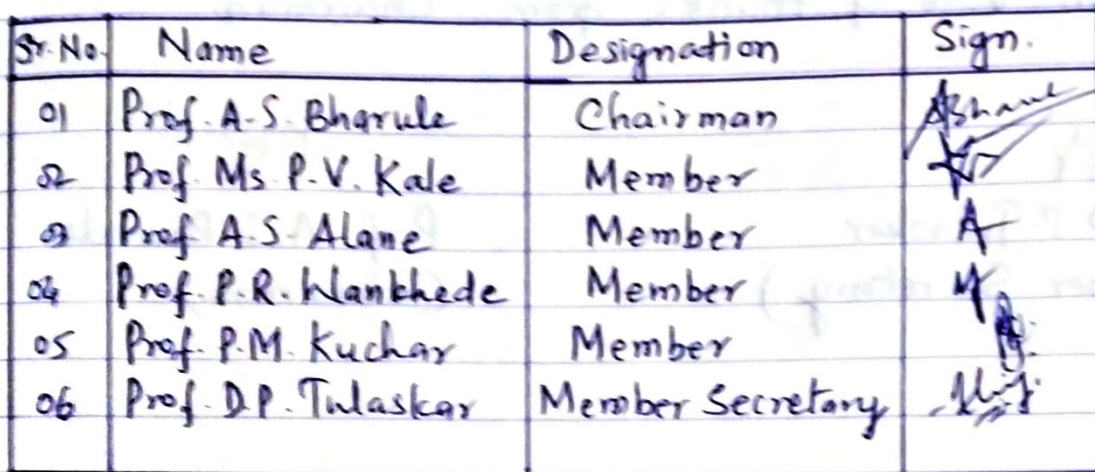 Sr. No. Name Designation Sign.
01 Prof. A.S. Bharule Chairman
02 Prof. Ms. P.V. Kale Member
03 Prof. A.S. Alane Member A
04 Prof. P.R. Wankhede Member
05 Prof. P.M. Kuchar Member
06 Prof. D.P. Tulaskar Member Secretary